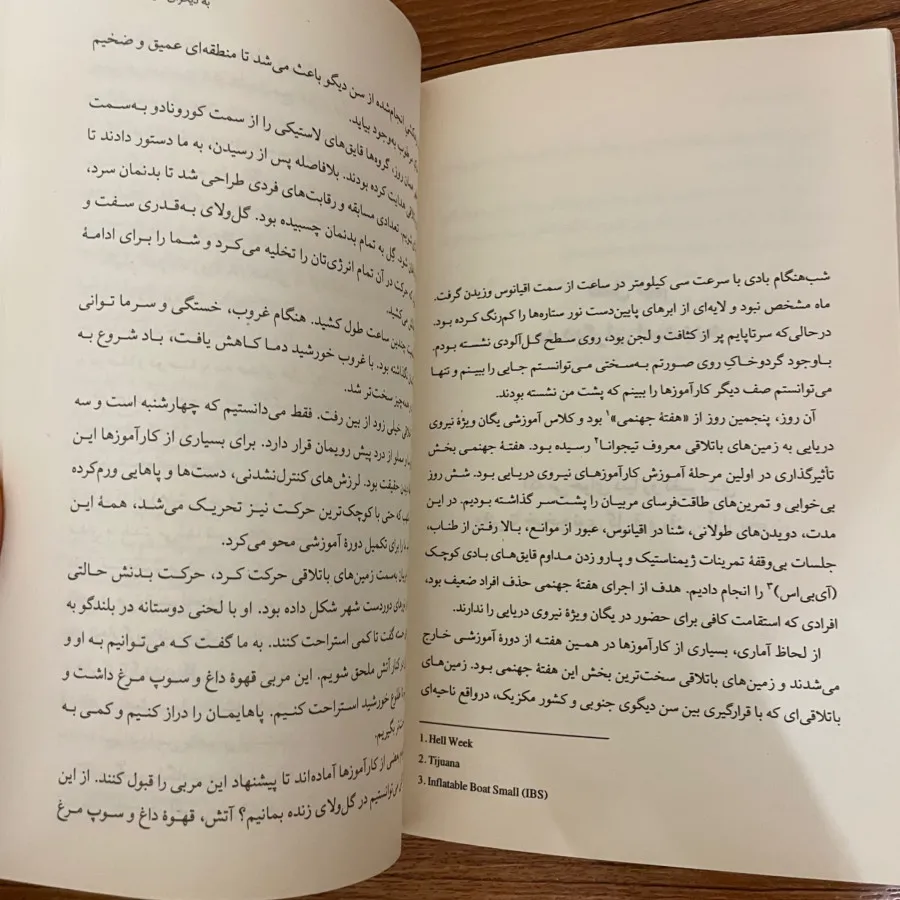 شب‌هنگام بادی با سرعت سی کیلومتر در ساعت از سمت اقیانوس وزیدن گرفت.
ماه مشخص نبود و لایه‌ای از ابرهای پایین‌دست نور ستاره‌ها را کم‌رنگ کرده بود.
درحالی‌که سرتاپایم پر از کثافت و لجن بود، روی سطح گل‌آلودی نشسته بودم.
باوجود گردوخاکِ روی صورتم به‌سختی می‌توانستم جایی را ببینم و تنها
می‌توانستم صف دیگر کارآموزها را ببینم که پشت من نشسته بودند.
آن روز، پنجمین روز از «هفتهٔ جهنمی»۱ بود و کلاس آموزشی یگان ویژهٔ نیروی
دریایی به زمین‌های باتلاقی معروف تیجوانا۲ رسیده بود. هفتهٔ جهنمی بخش
تأثیرگذاری در اولین مرحلهٔ آموزش کارآموزهای نیروی دریایی بود. شش روز
بی‌خوابی و تمرین‌های طاقت‌فرسای مربیان را پشت‌سر گذاشته بودیم. در این
مدت، دویدن‌های طولانی، شنا در اقیانوس، عبور از موانع، بالا رفتن از طناب،
جلسات بی‌وقفهٔ تمرینات ژیمناستیک و پارو زدن مداوم قایق‌های بادی کوچک
(آی‌بی‌اس)۳ را انجام دادیم. هدف از اجرای هفتهٔ جهنمی حذف افراد ضعیف بود،
افرادی که استقامت کافی برای حضور در یگان ویژهٔ نیروی دریایی را ندارند.
از لحاظ آماری، بسیاری از کارآموزها در همین هفته از دورهٔ آموزشی خارج
می‌شدند و زمین‌های باتلاقی سخت‌ترین بخش این هفتهٔ جهنمی بود. زمین‌های
باتلاقی‌ای که با قرارگیری بین سن دیگوی جنوبی و کشور مکزیک، درواقع ناحیه‌ای
1. Hell Week
2. Tijuana
3. Inflatable Boat Small (IBS)
به دیگران
انجام‌شده از سن دیگو باعث می‌شد تا منطقه‌ای عمیق و ضخیم
به‌وجود بیاید.
همان روز، گروه‌ها قایق‌های لاستیکی را از سمت کورونادو به‌سمت
هدایت کرده بودند. بلافاصله پس از رسیدن، به ما دستور دادند تا
تعدادی مسابقه و رقابت‌های فردی طراحی شد تا بدنمان سرد،
شود. گِل به تمام بدنمان چسبیده بود. گل‌ولای به‌قدری سفت و
حرکت در آن تمام انرژی‌تان را تخلیه می‌کرد و شما را برای ادامهٔ
می‌کشید.
چندین ساعت طول کشید. هنگام غروب، خستگی و سرما توانی
نگذاشته بود. با غروب خورشید دما کاهش یافت، باد شروع به
همه‌چیز سخت‌تر شد.
خیلی زود از بین رفت. فقط می‌دانستیم که چهارشنبه است و سه
از درد پیش رویمان قرار دارد. برای بسیاری از کارآموزها این
حقیقت بود. لرزش‌های کنترل‌نشدنی، دست‌ها و پاهایی ورم‌کرده
که حتی با کوچک‌ترین حرکت نیز تحریک می‌شد، همهٔ این
را برای تکمیل دورهٔ آموزشی محو می‌کرد.
به‌سمت زمین‌های باتلاقی حرکت کرد، حرکت بدنش حالتی
دوردست شهر شکل داده بود. او با لحنی دوستانه در بلندگو به
گفت تا کمی استراحت کنند. به ما گفت که می‌توانیم به او و
کنار آتش ملحق شویم. این مربی قهوهٔ داغ و سوپ مرغ داشت و
طلوع خورشید استراحت کنیم. پاهایمان را دراز کنیم و کمی به
بگیریم.
بعضی از کارآموزها آماده‌اند تا پیشنهاد این مربی را قبول کنند. از این
می‌توانستیم در گل‌ولای زنده بمانیم؟ آتش، قهوهٔ داغ و سوپ مرغ